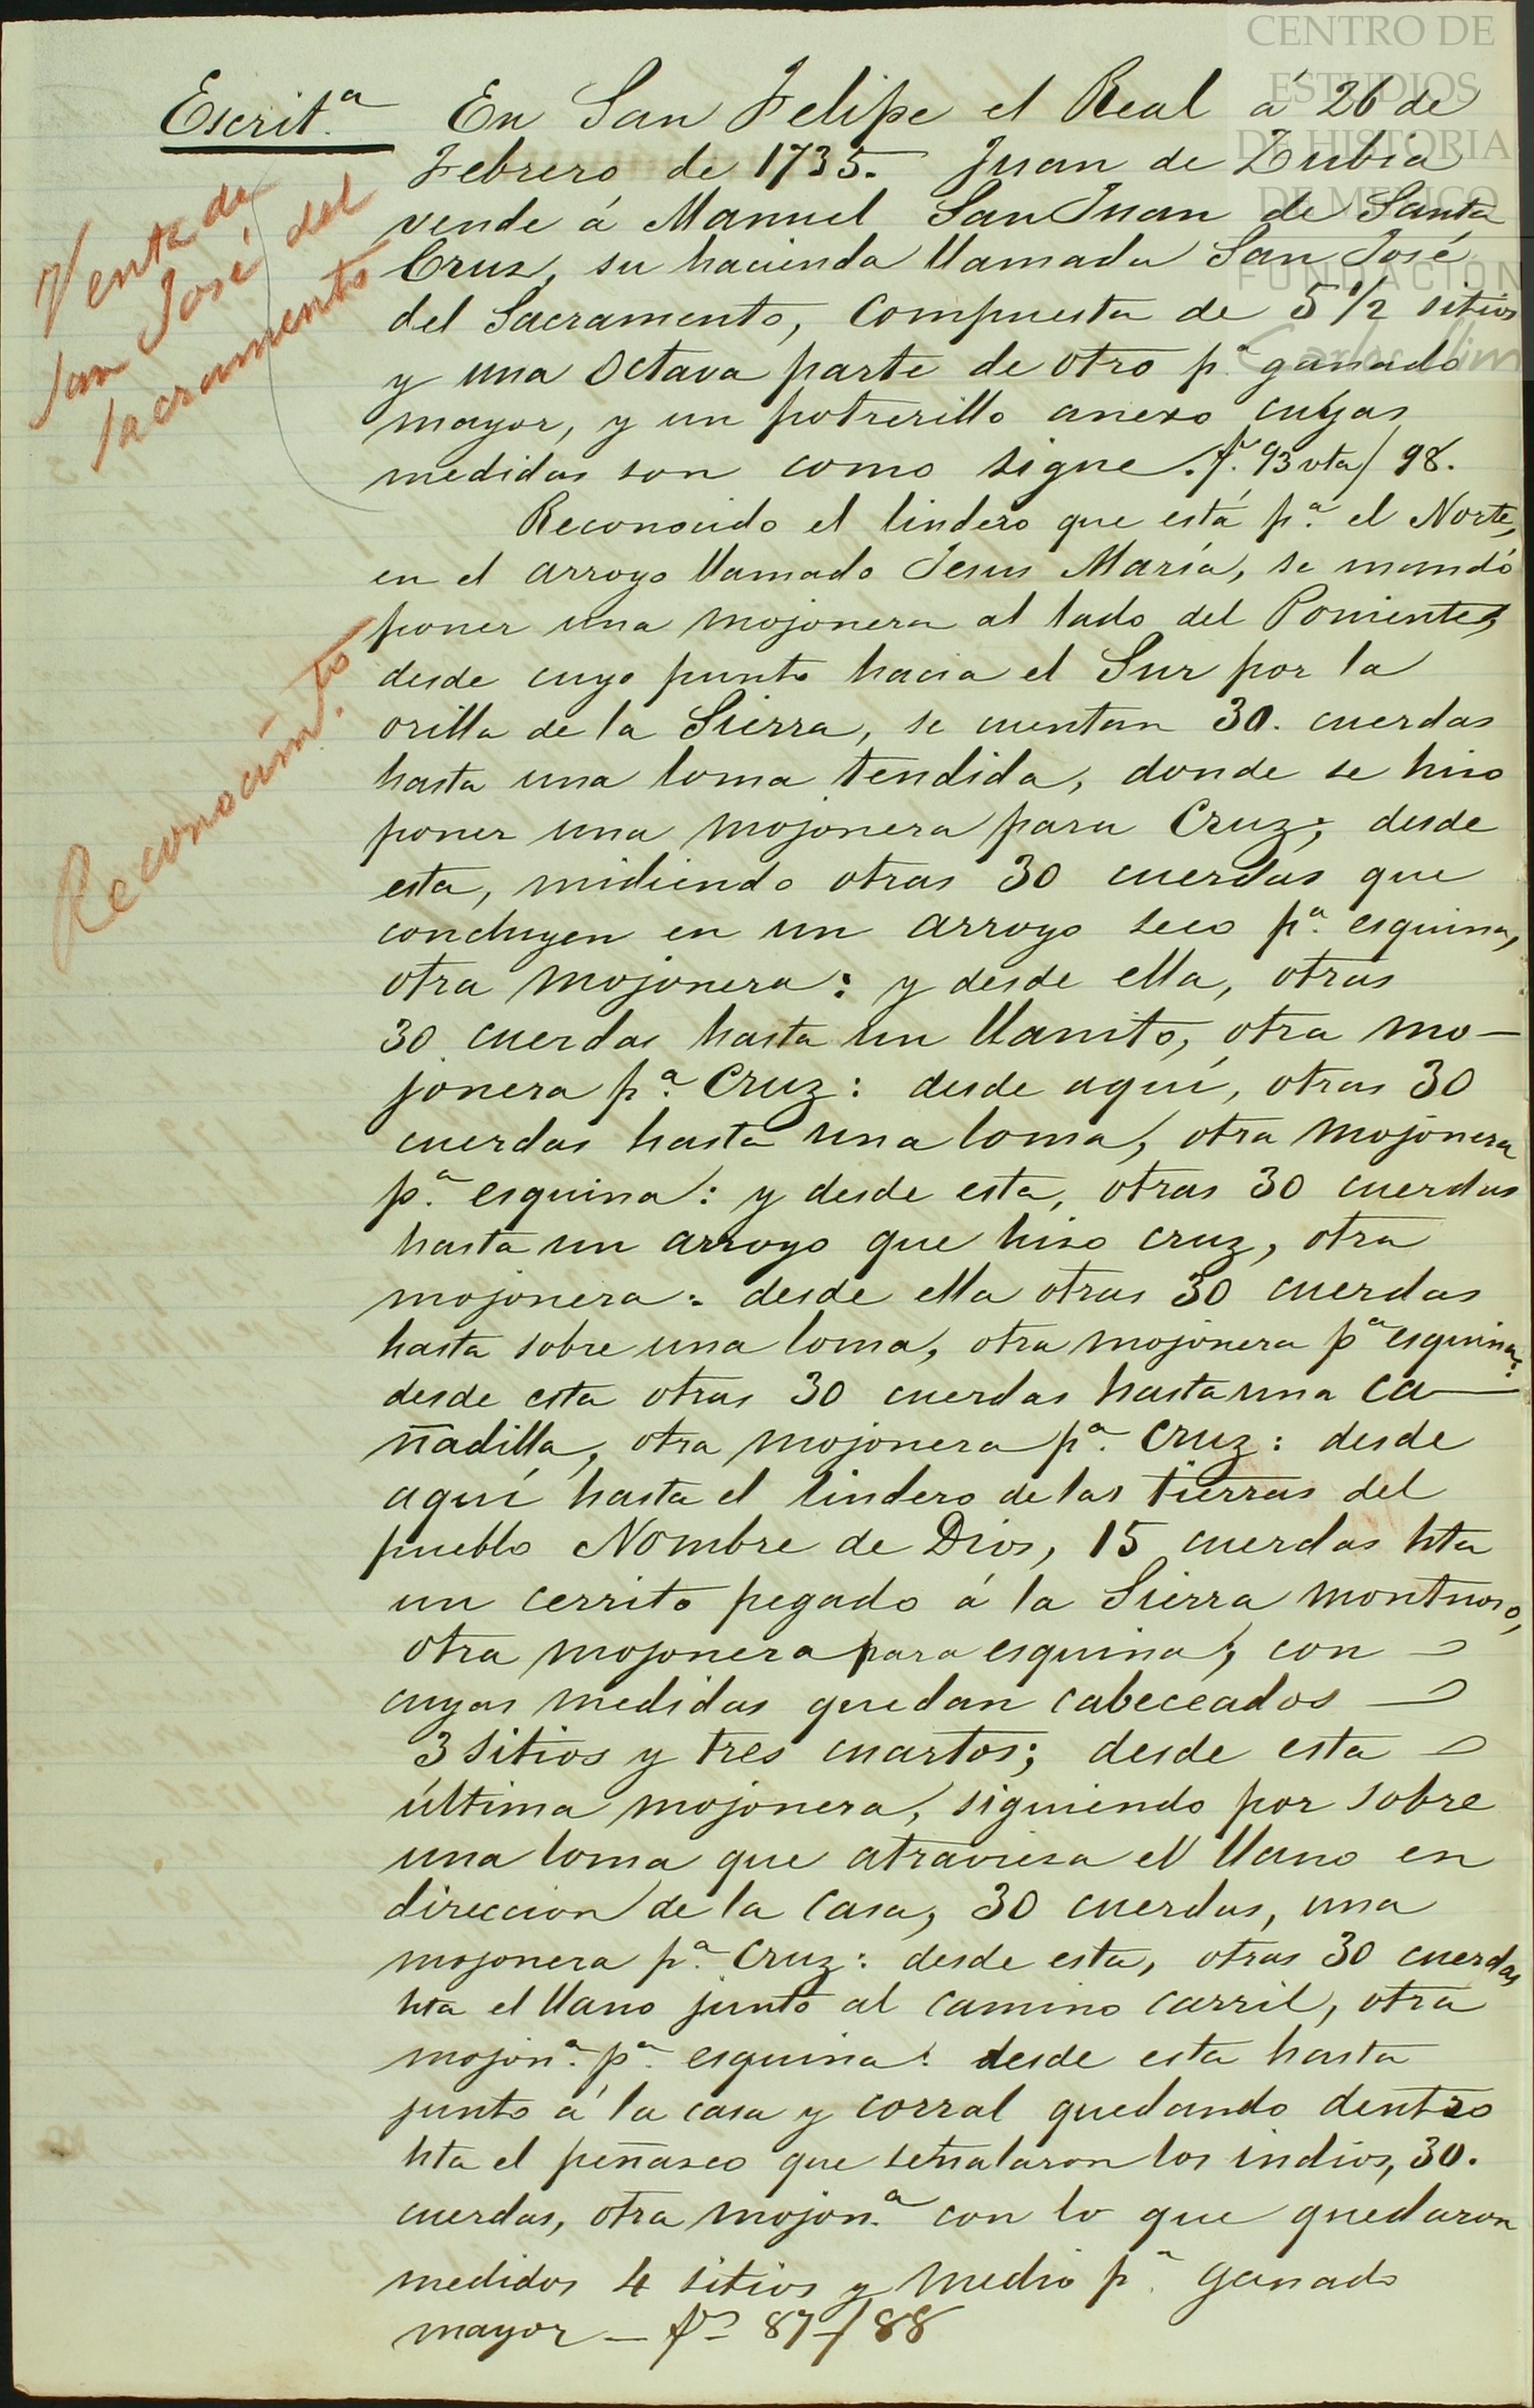 CENTRO DE
ESTUDIOS
DE HISTORIA
DE MEXICO
FUNDACIÓN
Carlos Slim
Escrit.ª
Venta de
San José del
Sacramento
En San Felipe el Real á 26 de
Febrero de 1735. Juan de Zubia
vende á Manuel San Juan de Santa
Cruz, su hacienda llamada San José
del Sacramento, compuesta de 5 1/2 sitios
y una octava parte de otro p.ª ganado
mayor, y un potrerillo anexo cuyas
medidas son como sigue. f.ˢ 93 vta/ 98.
Reconocim.to
Reconocido el lindero que está p.ª el Norte,
en el arroyo llamado Jesus María, se mandó
poner una mojonera al lado del Poniente,
desde cuyo punto hacia el Sur por la
orilla de la Sierra, se cuentan 30. cuerdas
hasta una loma tendida, donde se hiso
poner una mojonera para Cruz; desde
esta, midiendo otras 30 cuerdas que
concluyen en un arroyo seco p.ª esquina,
otra mojonera: y desde ella, otras
30 cuerdas hasta un llanito, otra mo-
jonera p.ª Cruz: desde aquí, otras 30
cuerdas hasta una loma, otra mojonera
p.ª esquina: y desde esta, otras 30 cuerdas
hasta un arroyo que hiso cruz, otra
mojonera: desde ella otras 30 cuerdas
hasta sobre una loma, otra mojonera pª esquina:
desde esta otras 30 cuerdas hasta una ca-
ñadilla, otra mojonera p.ª Cruz: desde
aquí hasta el lindero de las tierras del
pueblo Nombre de Dios, 15 cuerdas hta
un cerrito pegado á la Sierra montuoso,
otra mojonera para esquina, con
cuyas medidas quedan cabeceados
3 sitios y tres cuartos; desde esta
última mojonera, siguiendo por sobre
una loma que atraviesa el llano en
direccion de la casa, 30 cuerdas, una
mojonera p.ª Cruz: desde esta, otras 30 cuerdas
hta el llano junto al camino carril, otra
mojon.ª p.ª esquina: desde esta hasta
junto á la casa y corral quedando dentro
hta el peñasco que señalaron los indios, 30.
cuerdas, otra mojon.ª con lo que quedaron
medidos 4 sitios y medio p.ª ganado
mayor — f.ˢ 87/88